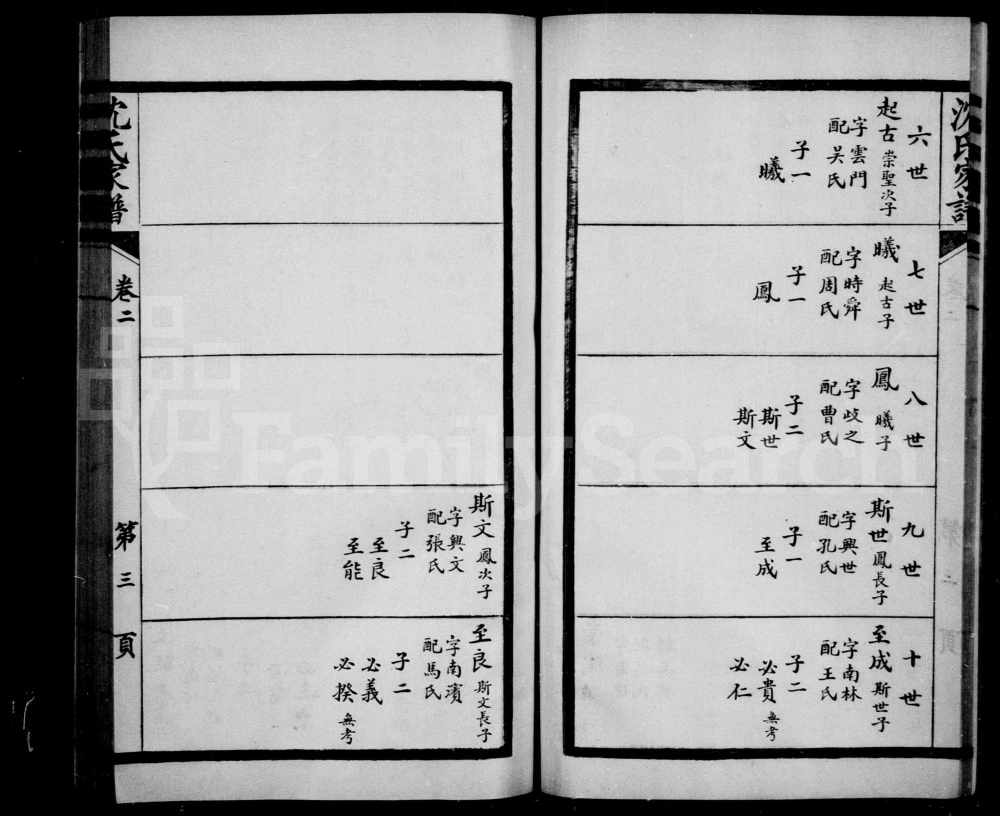 沈氏家譜
六世
起古 崇聖次子
字雲門
配吳氏
子一
曦
七世
曦 起古子
字時舜
配周氏
子一
鳳
八世
鳳 曦子
字歧之
配曹氏
子二
斯世
斯文
九世
斯世 鳳長子
字興世
配孔氏
子一
至成
十世
至成 斯世子
字南林
配王氏
子二
必貴 無考
必仁
斯文 鳳次子
字興文
配張氏
子二
至良
至能
至良 斯文長子
字南濱
配馬氏
子二
必義
必揆 無考
沈氏家譜
卷二
第三頁
FamilySearch